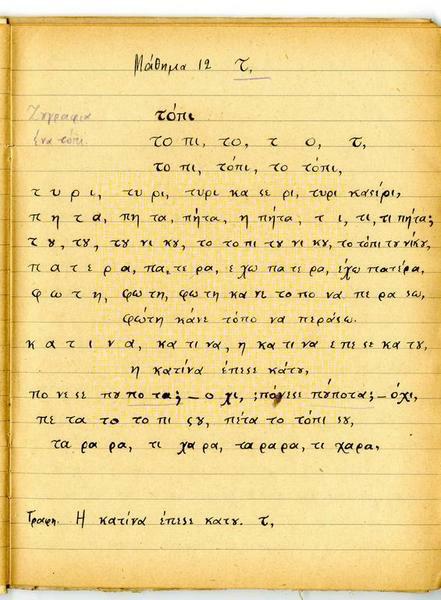 Μάθημα 12 τ,
Ζυγραφια τόπι
ένα τόπι. το πι, το, τ ο, τ,
το πι, τόπι, το τόπι,
τ υ ρ ι, τυ ρι, τυρι κα σε ρι, τυρι κασέρι,
π η τ α, πη τα, πήτα, η πήτα, τ ι, τι, τι πήτα;
τ υ, τυ, τυ νι κυ, το το πι τυ νι κυ, το τόπι τυ νίκυ,
π α τ ε ρ α, πα τε ρα, ε χω πα τε ρα, έχω πατέρα,
φ ω τ η, φω τη, φω τη κα νε το πο να πε ρα σω,
φώτη κάνε τόπο να περάσω.
κ α τ ι ν α, κα τι να, η κα τι να ε πε σε κα τυ,
η κατίνα έπεσε κάτυ,
πο νε σε πυ πο τα; – ο χι, ; πόνεσε πύποτα; – όχι,
πε τα το το πι συ, πέτα το τόπι συ,
τα ρα ρα, τι χα ρα, ταραρα, τι χαρα,
Γραφη. Η κατίνα έπεσε κατυ. τ,